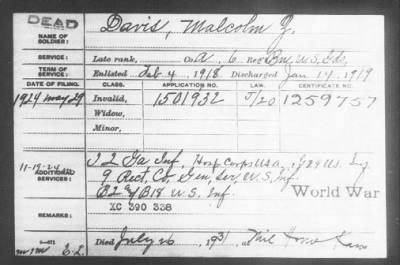 DEAD
NAME OF SOLDIER: Davis, Malcolm Z.
SERVICE: Late rank, Co. A, 6 Reg't Bn, U.S. Gds.
TERM OF SERVICE: Enlisted Feb 4, 1918 Discharged Jan 14, 1919
DATE OF FILING. CLASS. APPLICATION NO. LAW. CERTIFICATE NO.
1924 May 29 Invalid, 1501932 J/20 1259757
Widow,
Minor,
11-19-24 I 2 Ga Inf, Hosp Corps USA, 29 U.S. Inf
ADDITIONAL SERVICES: 9 Rect. Co. Gen. Serv. U.S. Inf
E2 B18 U.S. Inf. World War
REMARKS: XC 390 338
Died July 26, 1931, at Home Kans